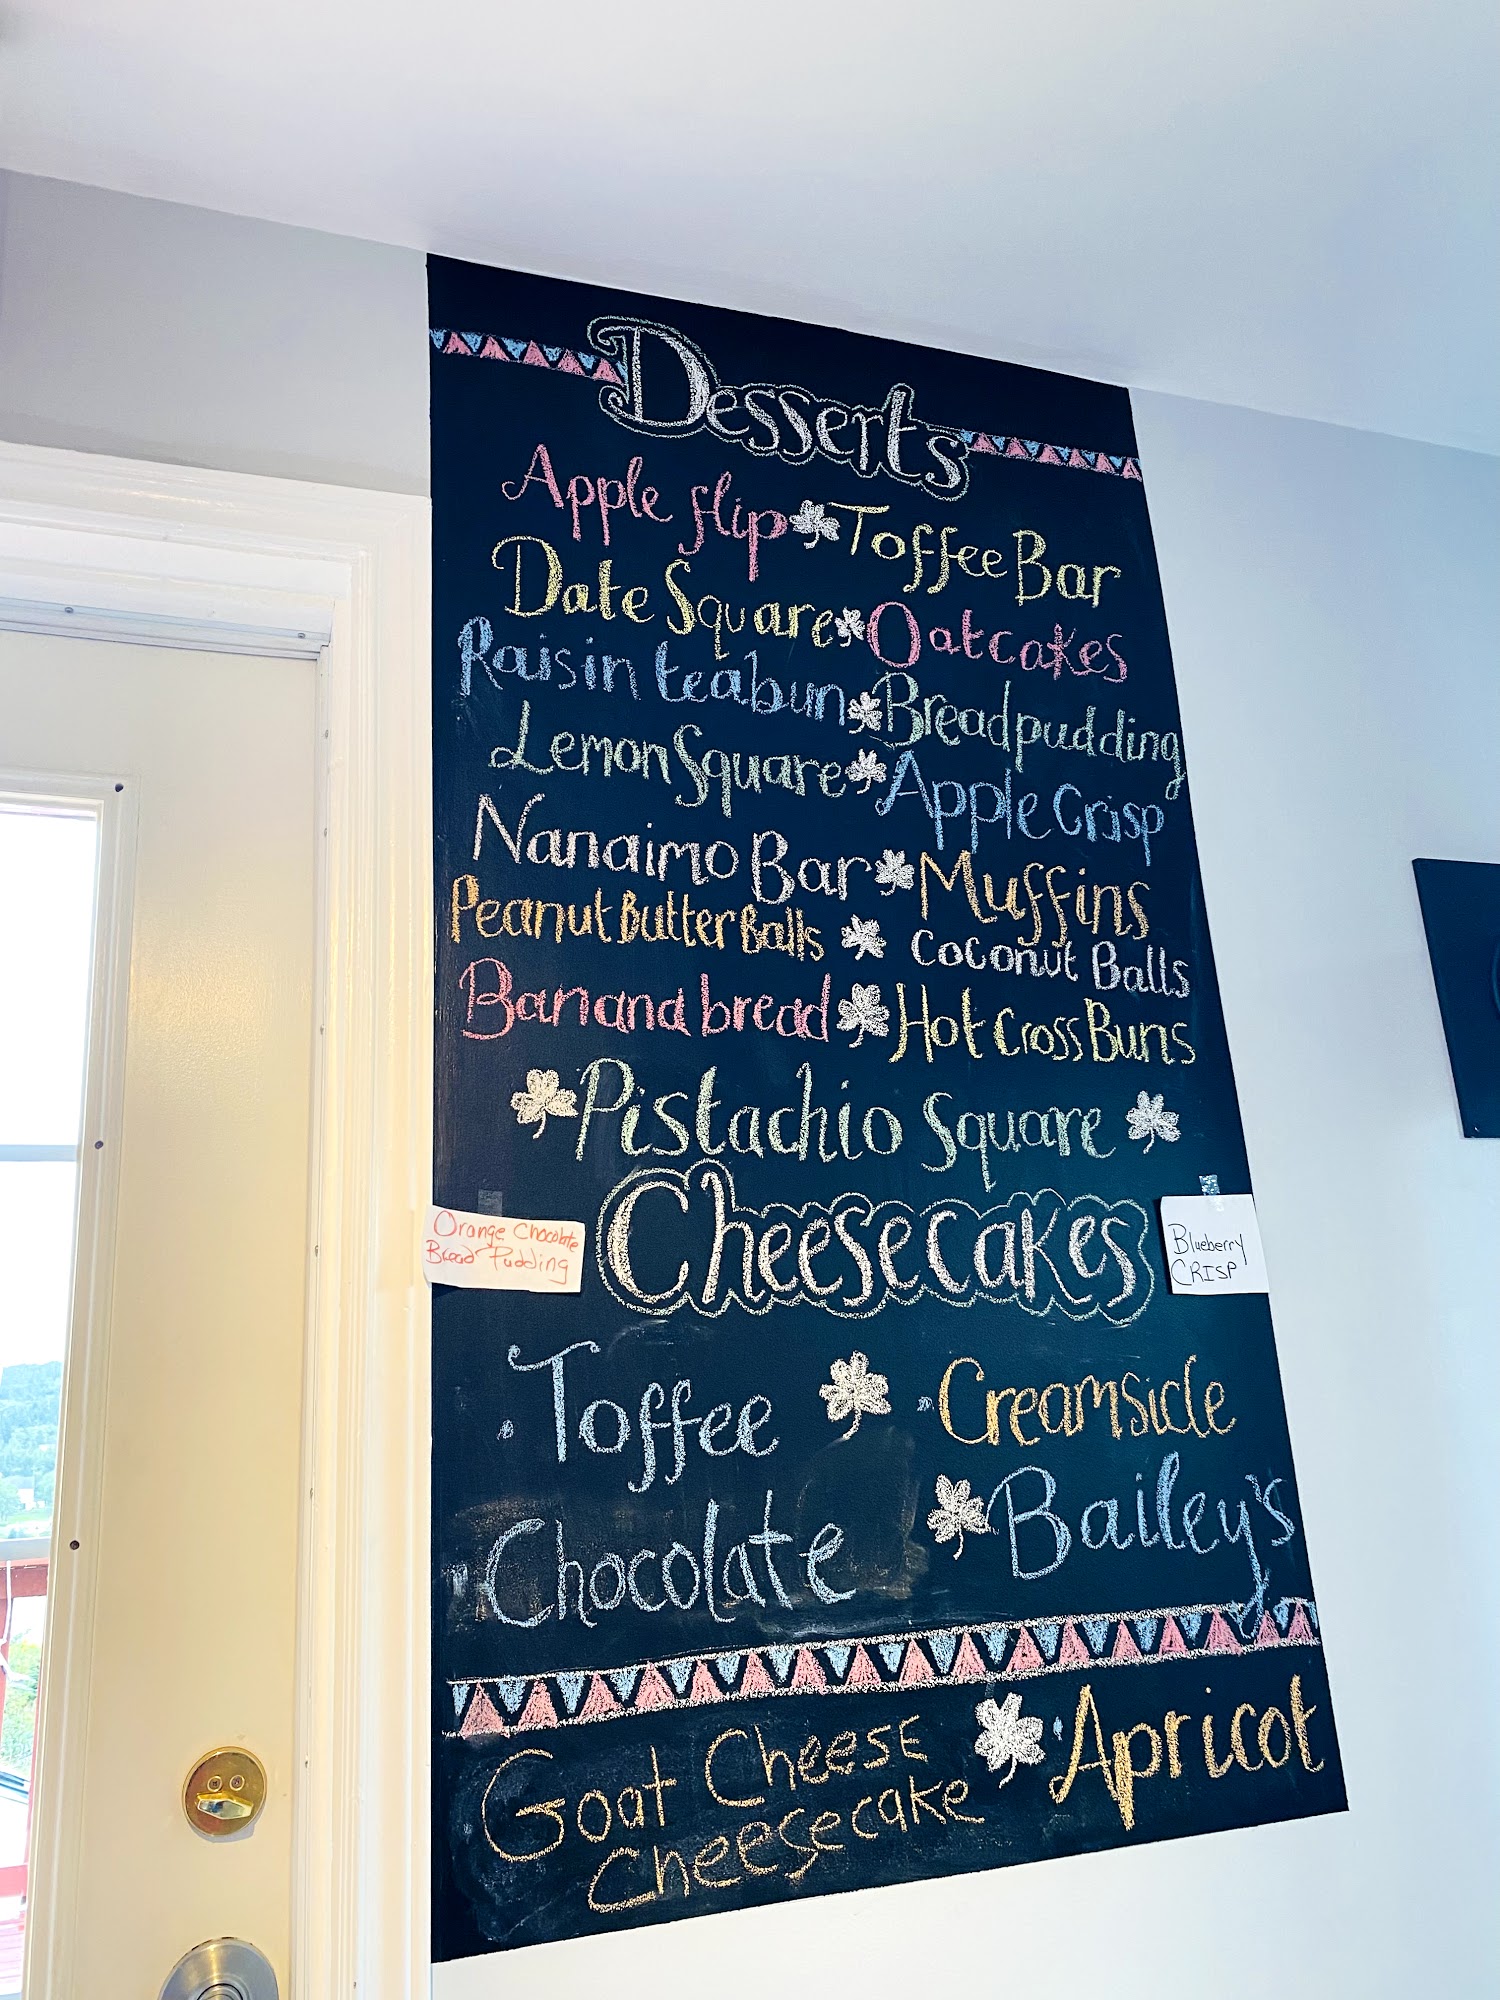 Desserts
Apple flip Toffee Bar
Date Square Oatcakes
Raisin teabun Bread pudding
Lemon Square Apple Crisp
Nanaimo Bar Muffins
Peanut Butter Balls Coconut Balls
Banana bread Hot Cross Buns
Pistachio Square
Orange Chocolate
Bread Pudding
Cheesecakes
Blueberry
CRISP
Toffee Creamsicle
Chocolate Bailey's
Goat Cheese
Cheesecake
Apricot